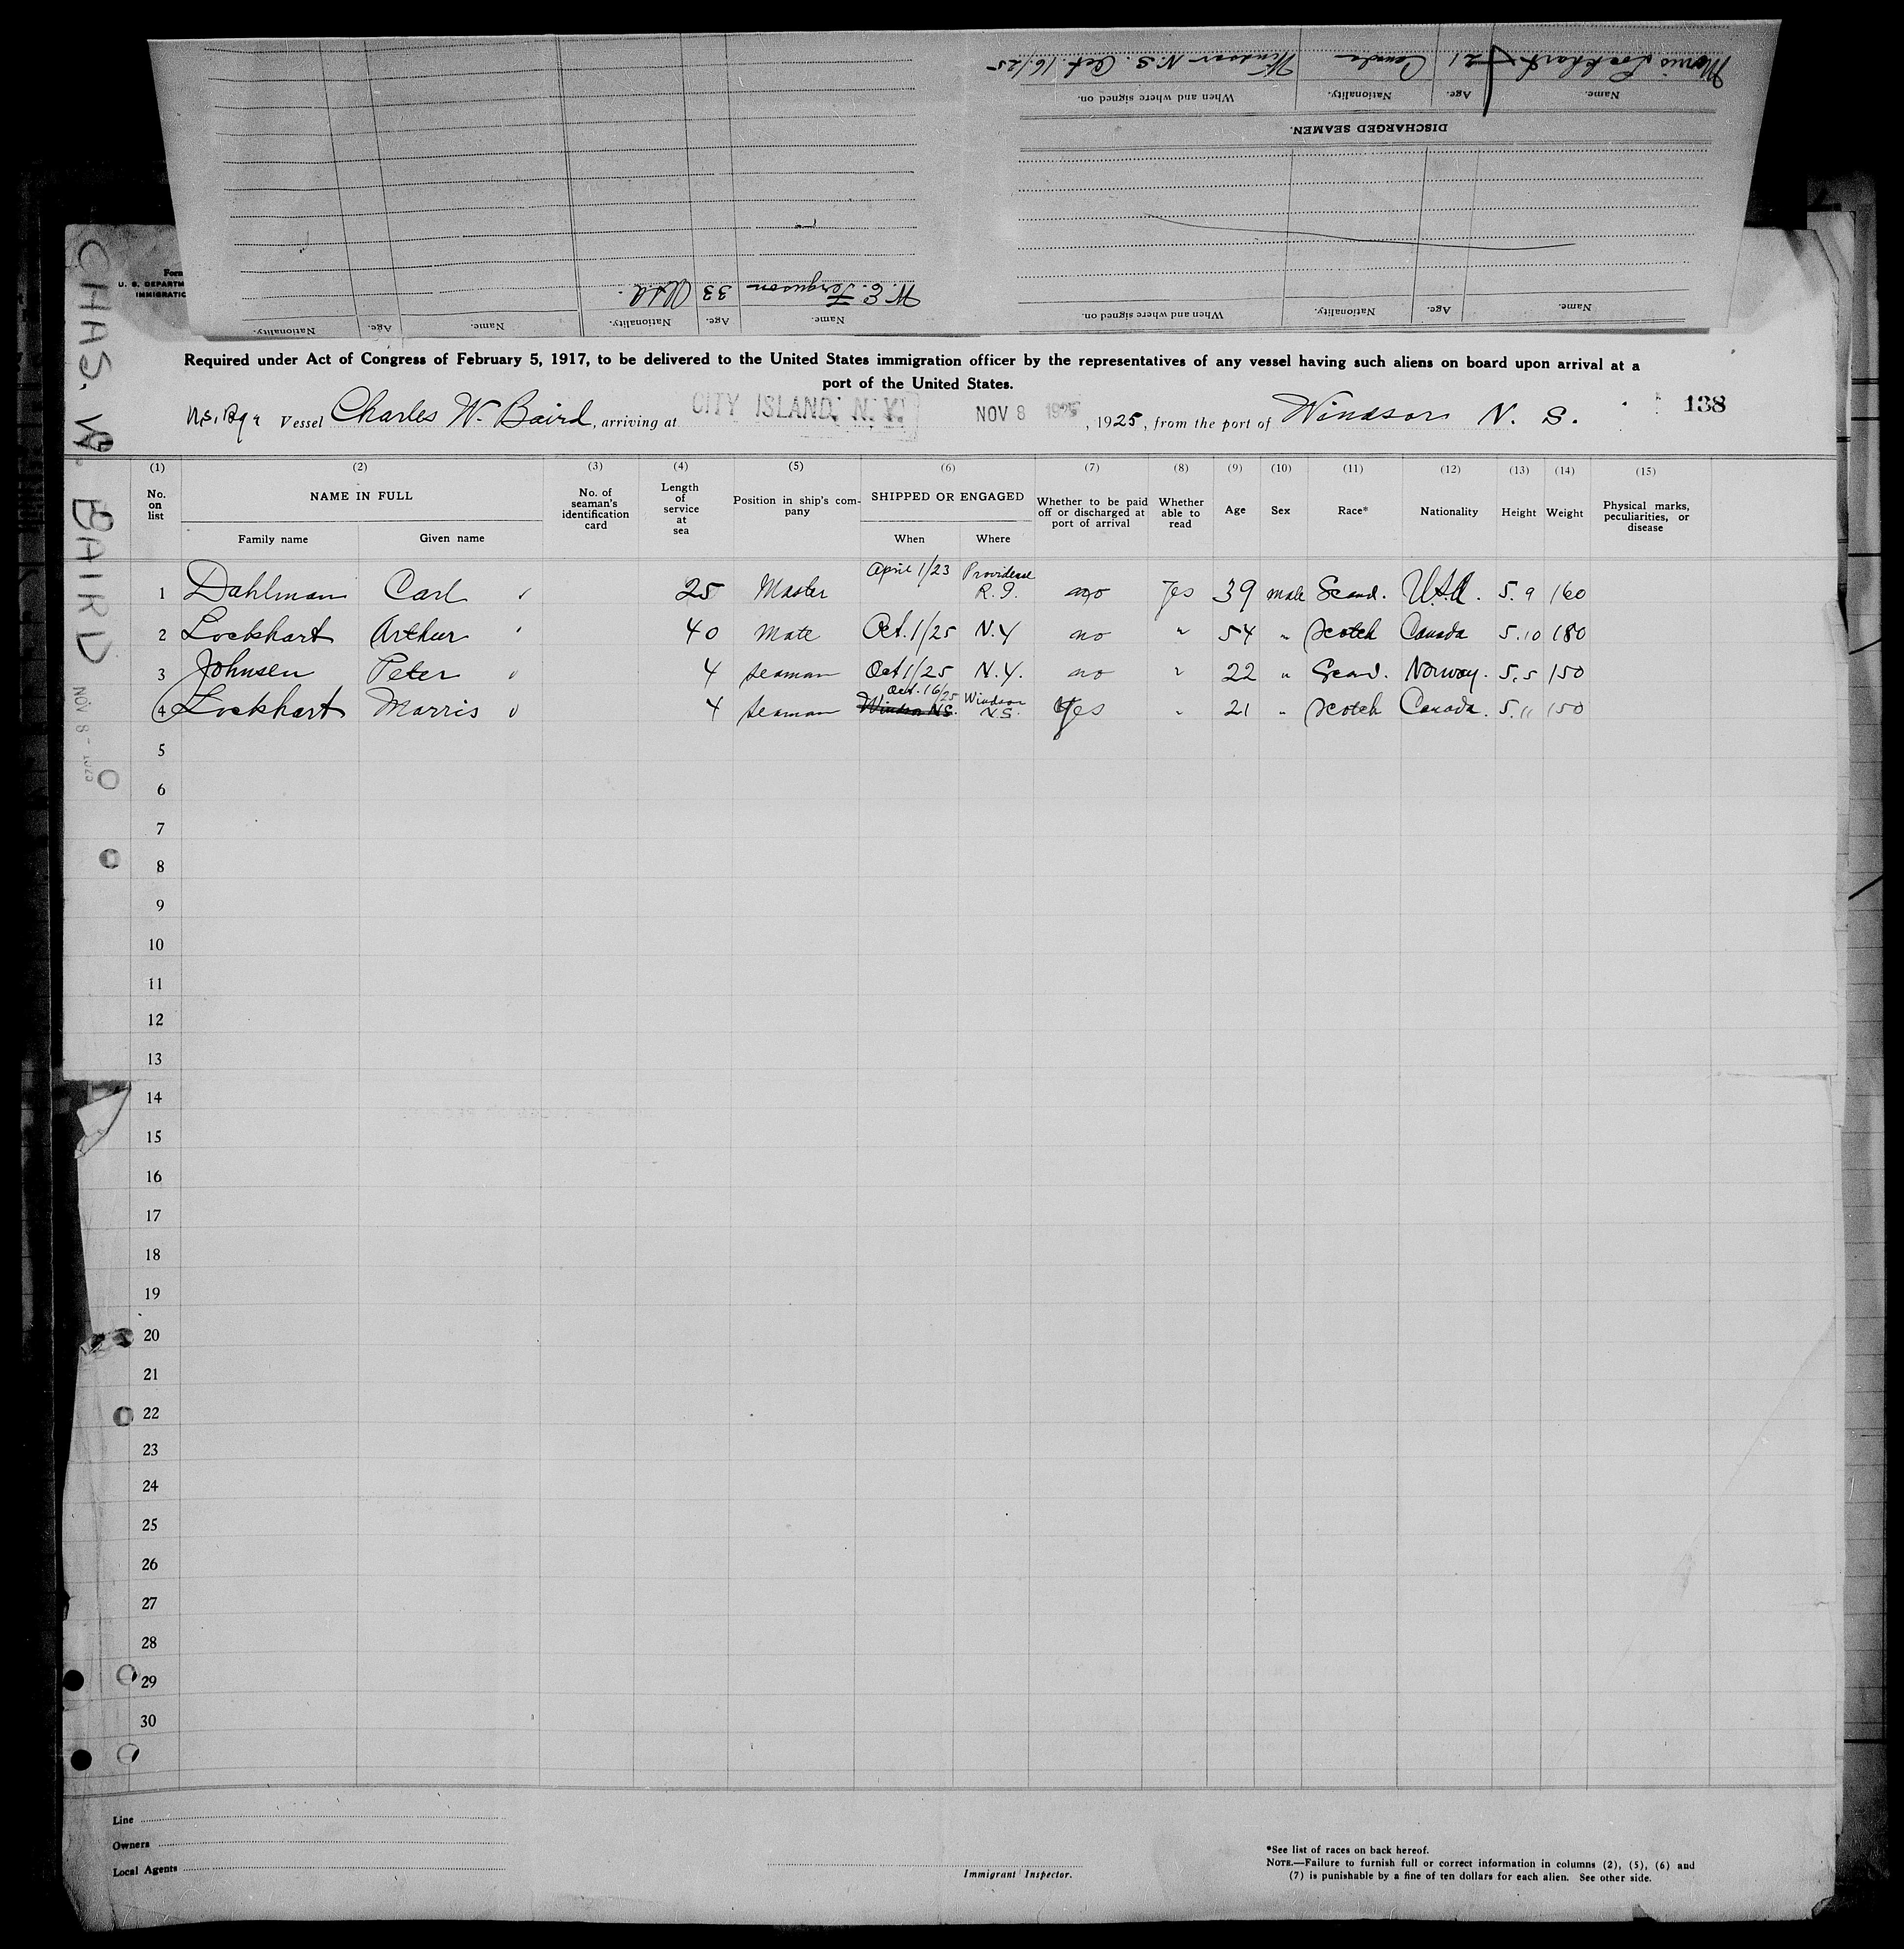 Morris Lockhart 21 Canada Windsor N.S. Oct. 16/25
Name. Age. Nationality. When and where signed on.
DISCHARGED SEAMEN.
W. E. Ferguson 33 U.S.A.
Name. Age. Nationality. Name. Age. Nationality.
Name. Age. Nationality. When and where signed on.
Form
U. S. DEPARTM
IMMIGRATIO
CHAS. W. BAIRD
NOV 8 - 1925
Required under Act of Congress of February 5, 1917, to be delivered to the United States immigration officer by the representatives of any vessel having such aliens on board upon arrival at a
port of the United States.
Vessel Charles W. Baird, arriving at CITY ISLAND, N. Y. NOV 8 1925, 1925, from the port of Windsor N. S. 138
(1) (2) (3) (4) (5) (6) (7) (8) (9) (10) (11) (12) (13) (14) (15)
No. on list
NAME IN FULL
Family name Given name
No. of seaman's identification card
Length of service at sea
Position in ship's company
SHIPPED OR ENGAGED
When Where
Whether to be paid off or discharged at port of arrival
Whether able to read
Age Sex Race* Nationality Height Weight
Physical marks, peculiarities, or disease
1 Dahlman Carl 25 Master April 1/23 Providence R.I. no Yes 39 male Scand. U.S.A. 5.9 160
2 Lockhart Arthur 40 Mate Oct. 1/25 N.Y no " 54 " Scotch Canada 5.10 180
3 Johnsen Peter 4 seaman Oct 1/25 N.Y. no " 22 " Scand. Norway. 5.5 150
4 Lockhart Morris 4 seaman Oct. 16/25 Windsor N.S. Windsor N.S. Yes " 21 " Scotch Canada. 5.11 150
5
6
7
8
9
10
11
12
13
14
15
16
17
18
19
20
21
22
23
24
25
26
27
28
29
30
Line
Owners
Local Agents
Immigrant Inspector.
*See list of races on back hereof.
NOTE.—Failure to furnish full or correct information in columns (2), (5), (6) and
(7) is punishable by a fine of ten dollars for each alien. See other side.